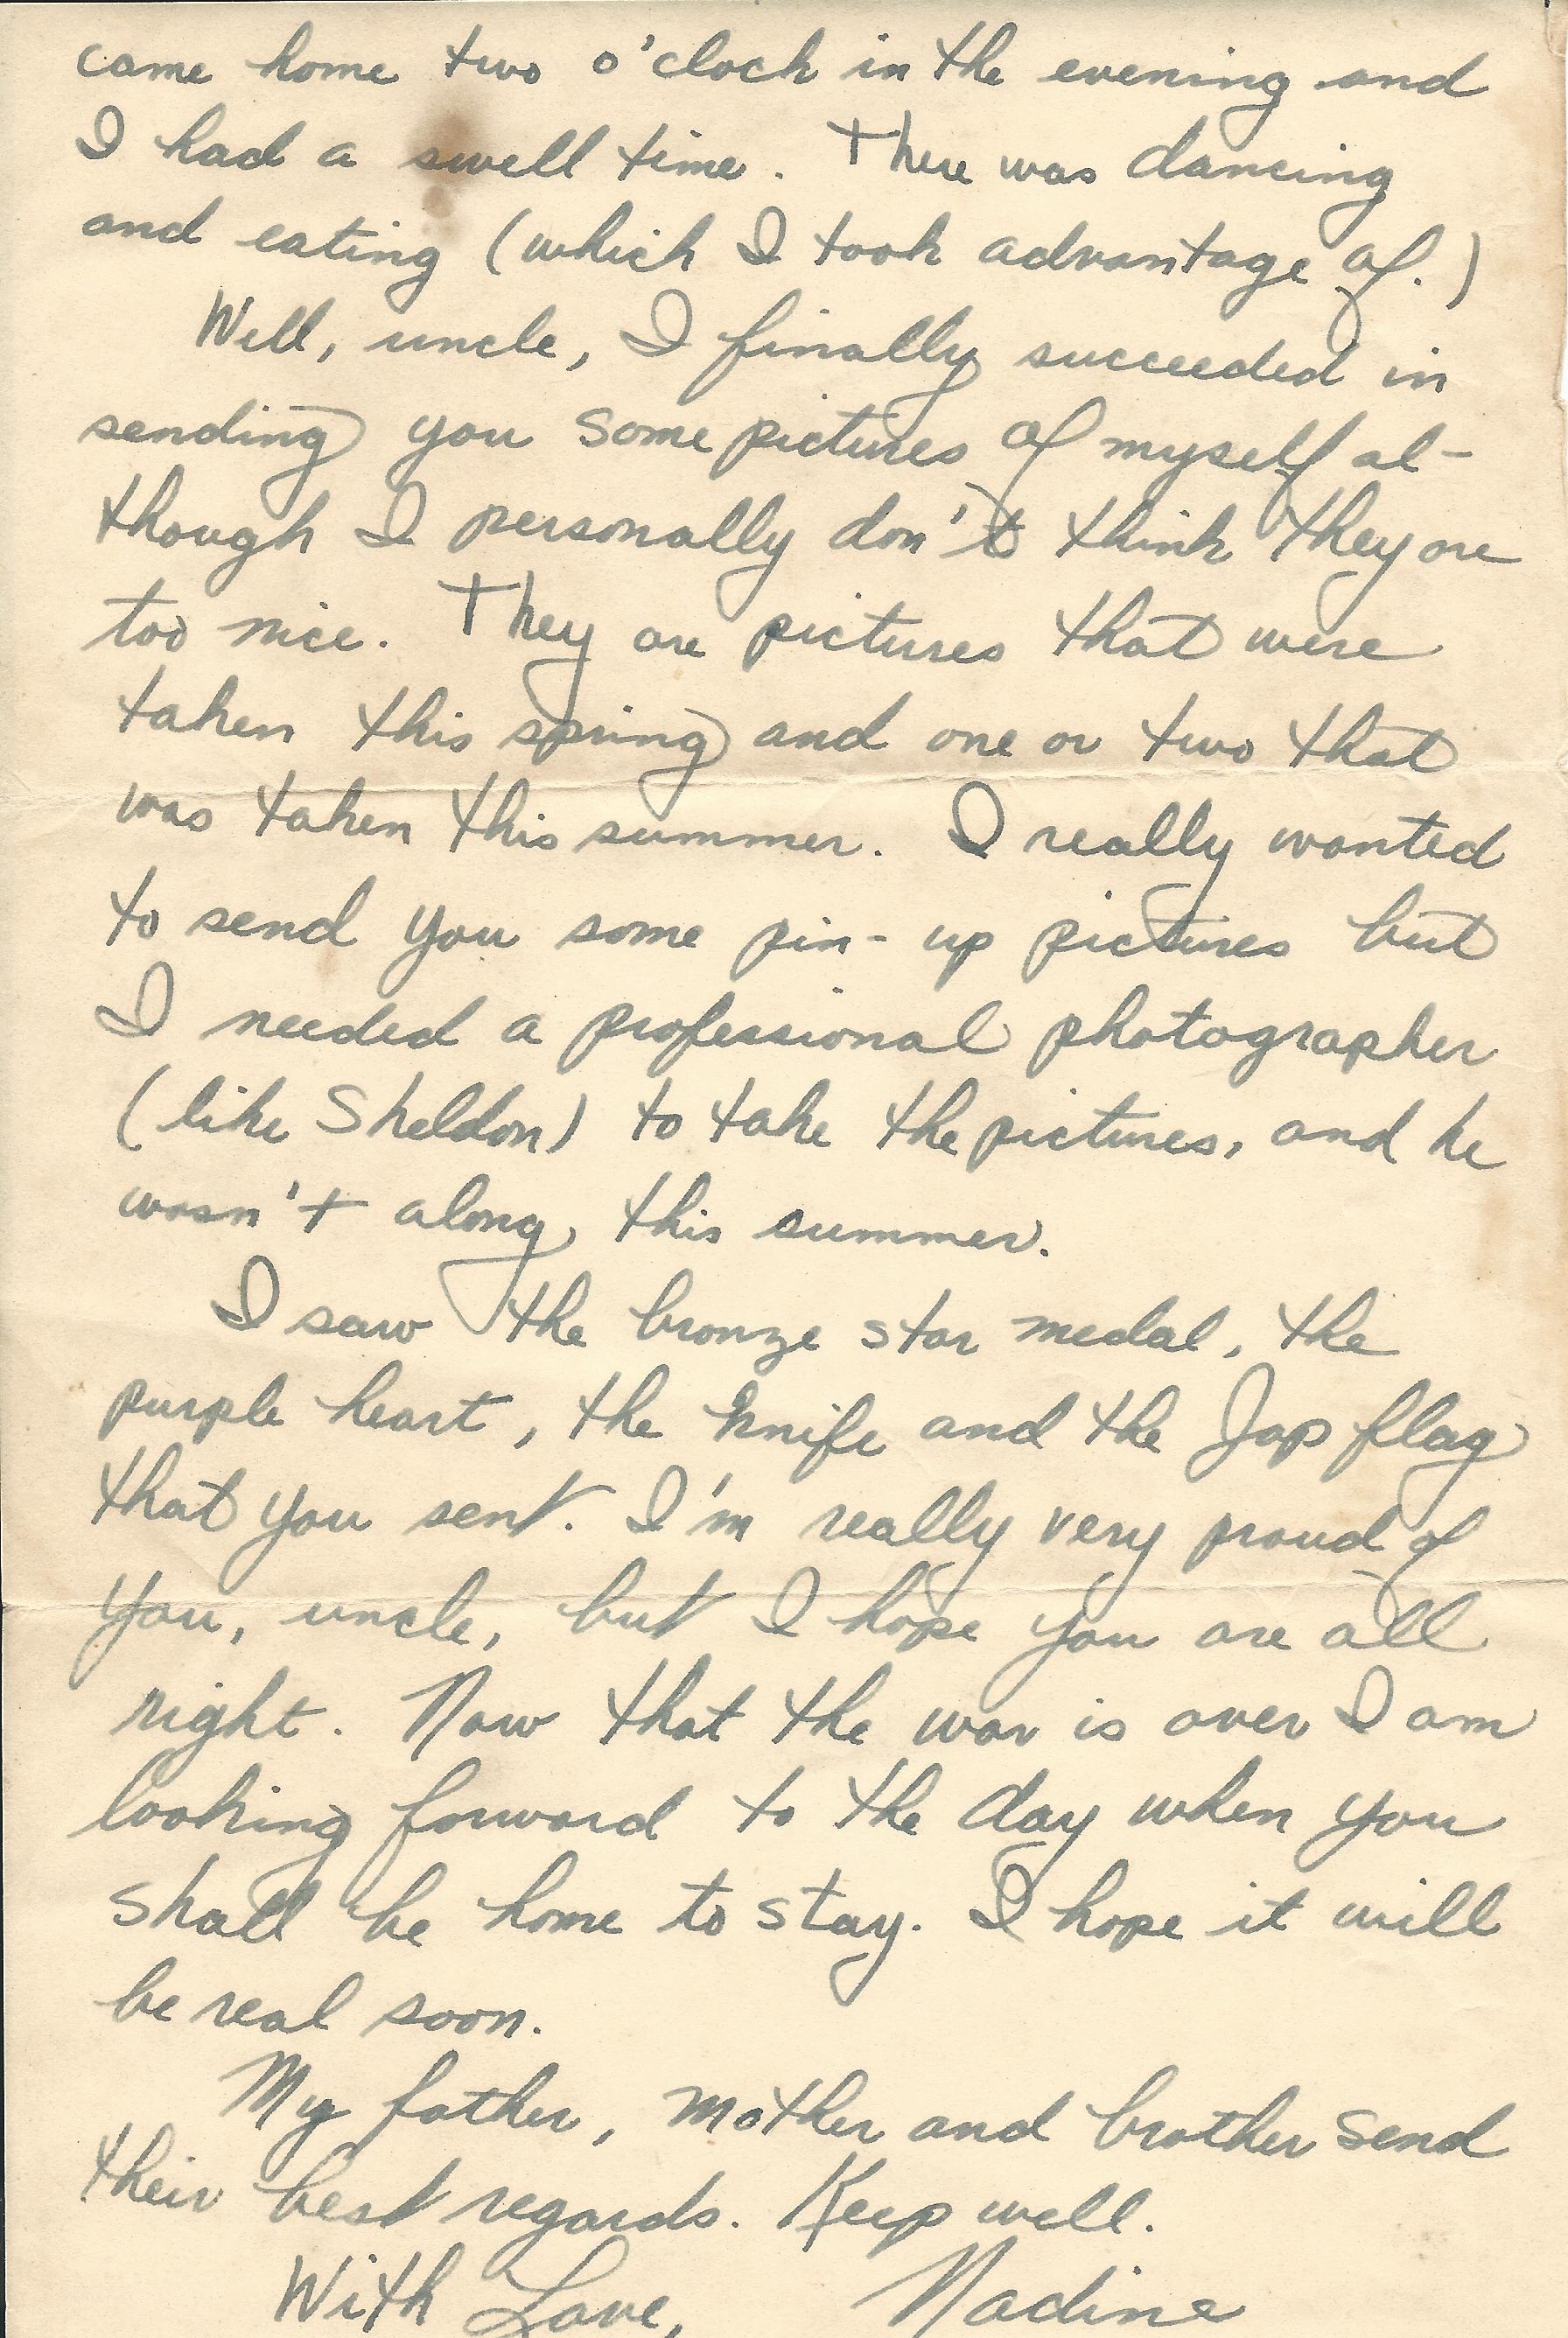 came home two o'clock in the evening and
I had a swell time. There was dancing
and eating (which I took advantage of.)
Well, uncle, I finally succeeded in
sending you some pictures of myself al-
though I personally don't think they are
too nice. They are pictures that were
taken this spring and one or two that
was taken this summer. I really wanted
to send you some pin-up pictures but
I needed a professional photographer
(like Sheldon) to take the pictures, and he
wasn't along this summer.
I saw the bronze star medal, the
purple heart, the knife and the Jap flag
that you sent. I'm really very proud of
you, uncle, but I hope you are all
right. Now that the war is over I am
looking forward to the day when you
shall be home to stay. I hope it will
be real soon.
My father, mother and brother send
their best regards. Keep well.
With Love, Nadine